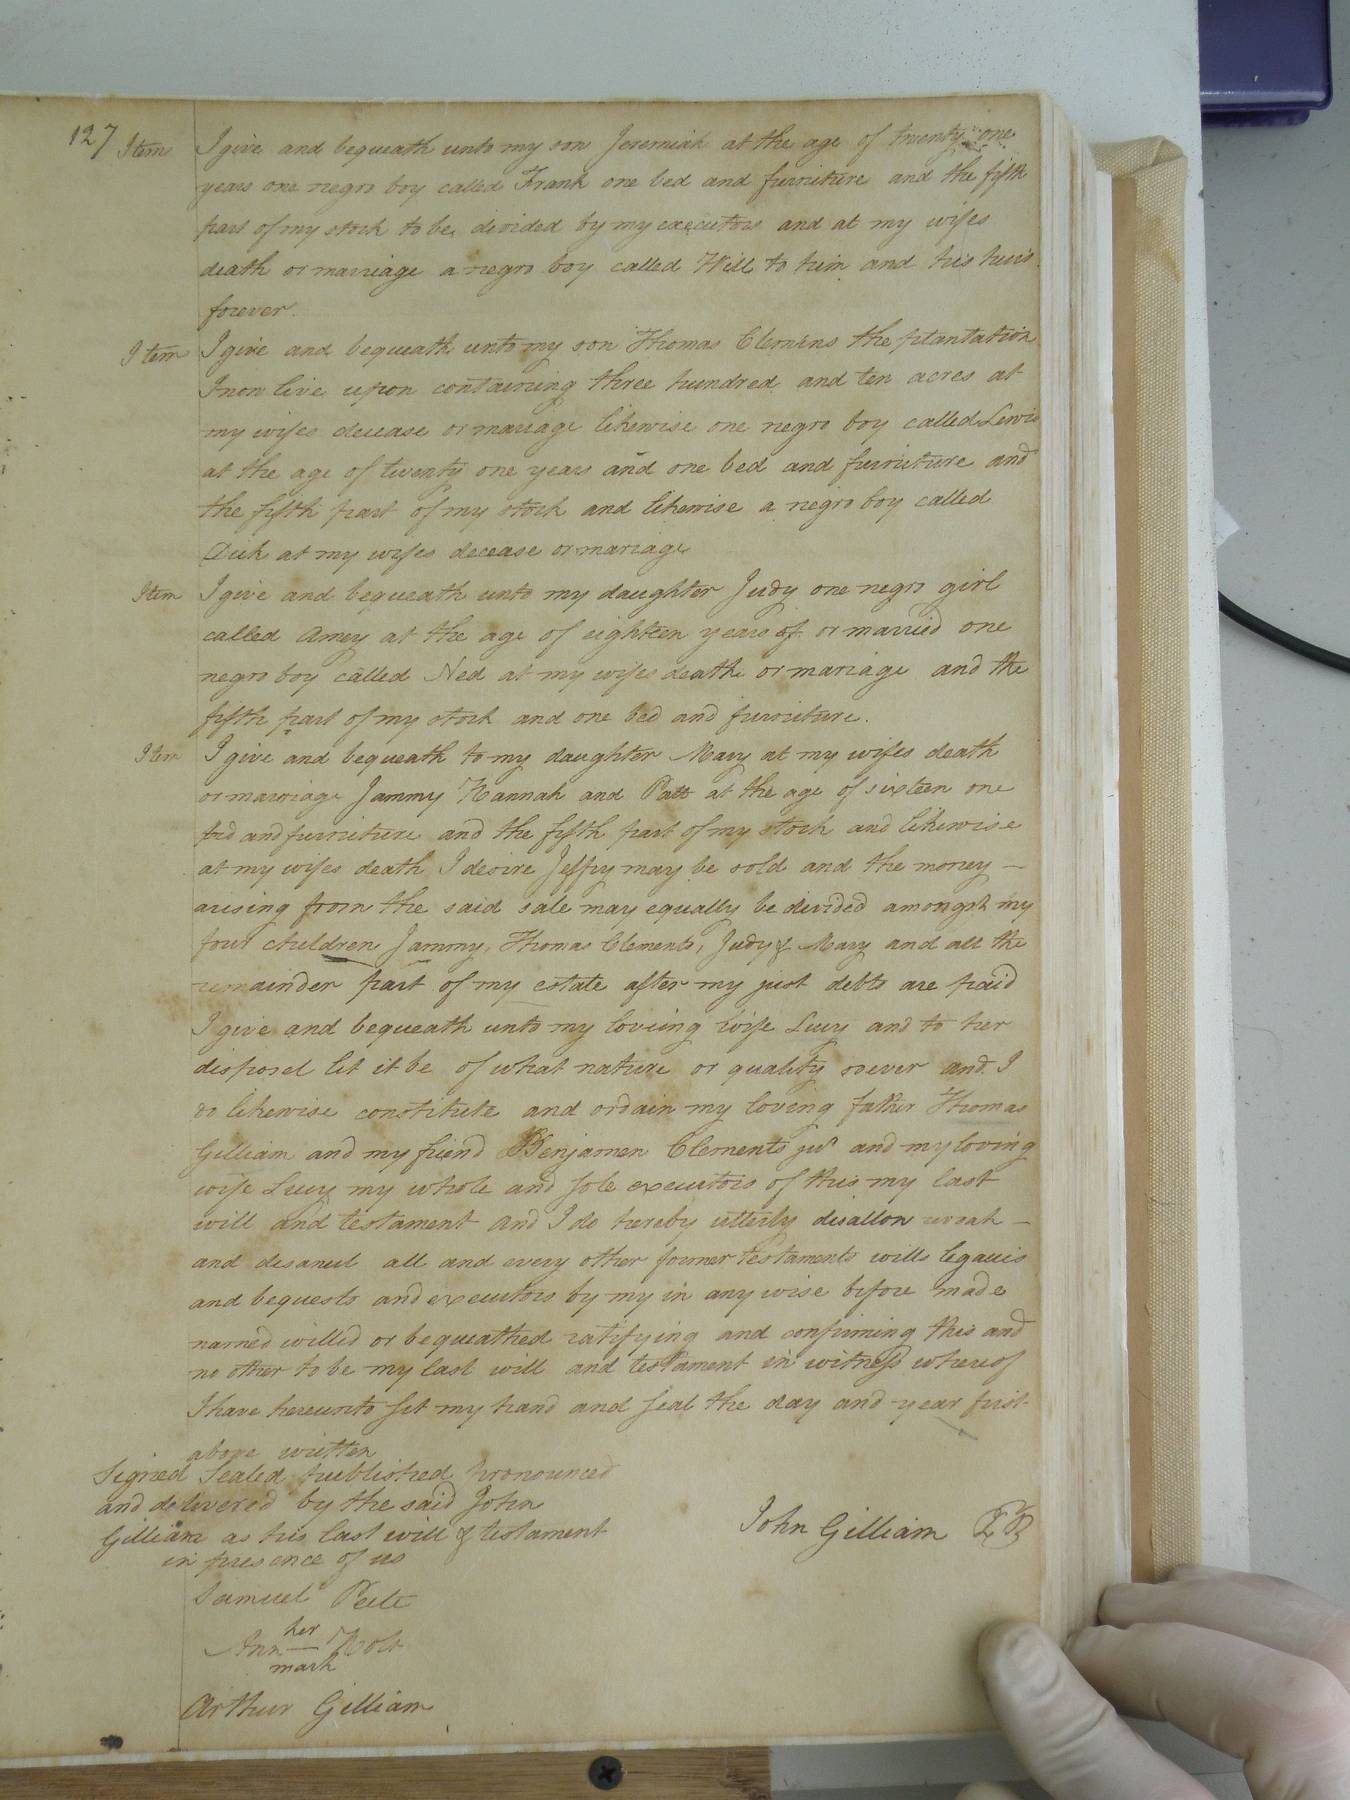 127 Item I give and bequeath unto my son Jeremiah at the age of twenty one
years one negro boy called Frank one bed and furniture and the fifth
part of my stock to be divided by my executors and at my wifes
death or marriage a negro boy called Will to him and his heirs
forever.
Item I give and bequeath unto my son Thomas Clemens the plantation
I now live upon containing three hundred and ten acres at
my wifes decease or mariage likewise one negro boy called Lewis
at the age of twenty one years and one bed and furniture and
the fifth part of my stock and likewise a negro boy called
Dick at my wifes decease or mariage
Item I give and bequeath unto my daughter Judy one negro girl
called Amey at the age of eighteen years of or married one
negro boy called Ned at my wifes death or mariage and the
fifth part of my stock and one bed and furniture.
Item I give and bequeath to my daughter Mary at my wifes death
or marriage Jammy Hannah and Patt at the age of sixteen one
bed and furniture and the fifth part of my stock and likewise
at my wifes death I desire Jeffry may be sold and the money —
arising from the said sale may equally be divided amongst my
four children Jammy, Thomas Clements, Judy & Mary and all the
remainder part of my estate after my just debts are paid
I give and bequeath unto my loveing wife Lucy and to her
disposel let it be of what nature or quality soever and I
do likewise constitute and ordain my loving father Thomas
Gilliam and my friend Benjamen Clements junr and my loving
wife Lucy my whole and sole executors of this my last
will and testament and I do hereby utterly disallow revoak —
and disanul all and every other former testaments wills legacies
and bequests and executors by my in any wise before made
named willed or bequeathed ratifying and confirming this and
no other to be my last will and testament in witness whereof
I have hereunto set my hand and seal the day and year first
above written
Signed Sealed published pronounced
and delivered by the said John
Gilliam as his last will & testament
in presence of us
John Gilliam LS
Samuel Peete
her
Ann — Holt
mark
Arthur Gilliam